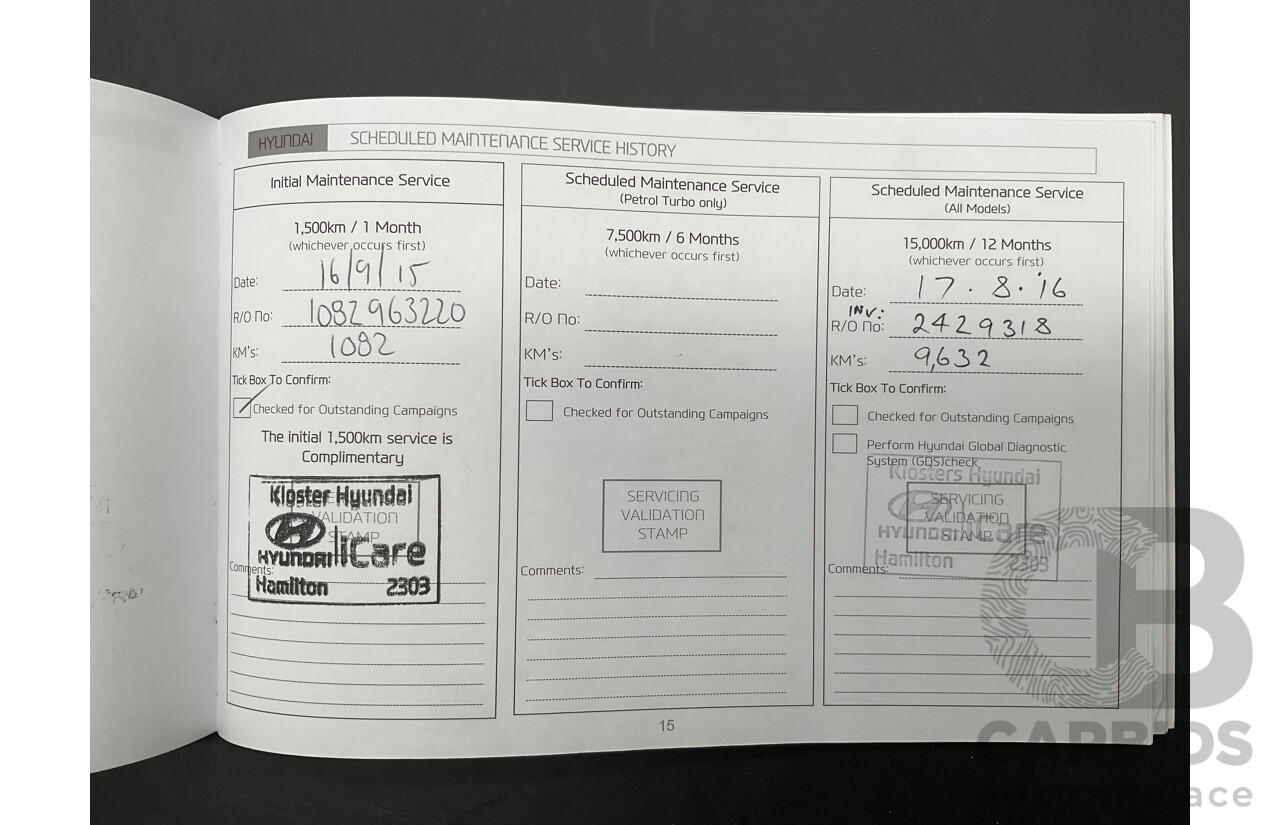 HYUNDAI SCHEDULED MAINTENANCE SERVICE HISTORY
Initial Maintenance Service
1,500km / 1 Month
(whichever occurs first)
Date: 16/9/15
R/O No: 1082963220
KM's: 1082
Tick Box To Confirm:
Checked for Outstanding Campaigns
The initial 1,500km service is
Complimentary
SERVICING
VALIDATION
STAMP
Kloster Hyundai
HYUNDAI iCare
Hamilton 2303
Comments:
Scheduled Maintenance Service
(Petrol Turbo only)
7,500km / 6 Months
(whichever occurs first)
Date:
R/O No:
KM's:
Tick Box To Confirm:
Checked for Outstanding Campaigns
SERVICING
VALIDATION
STAMP
Comments:
Scheduled Maintenance Service
(All Models)
15,000km / 12 Months
(whichever occurs first)
Date: 17.8.16
INV:
R/O No: 2429318
KM's: 9,632
Tick Box To Confirm:
Checked for Outstanding Campaigns
Perform Hyundai Global Diagnostic
System (GDS)check
Klosters Hyundai
SERVICING
VALIDATION
STAMP
HYUNDAI iCare
Hamilton 2303
Comments:
15
CARBIDS